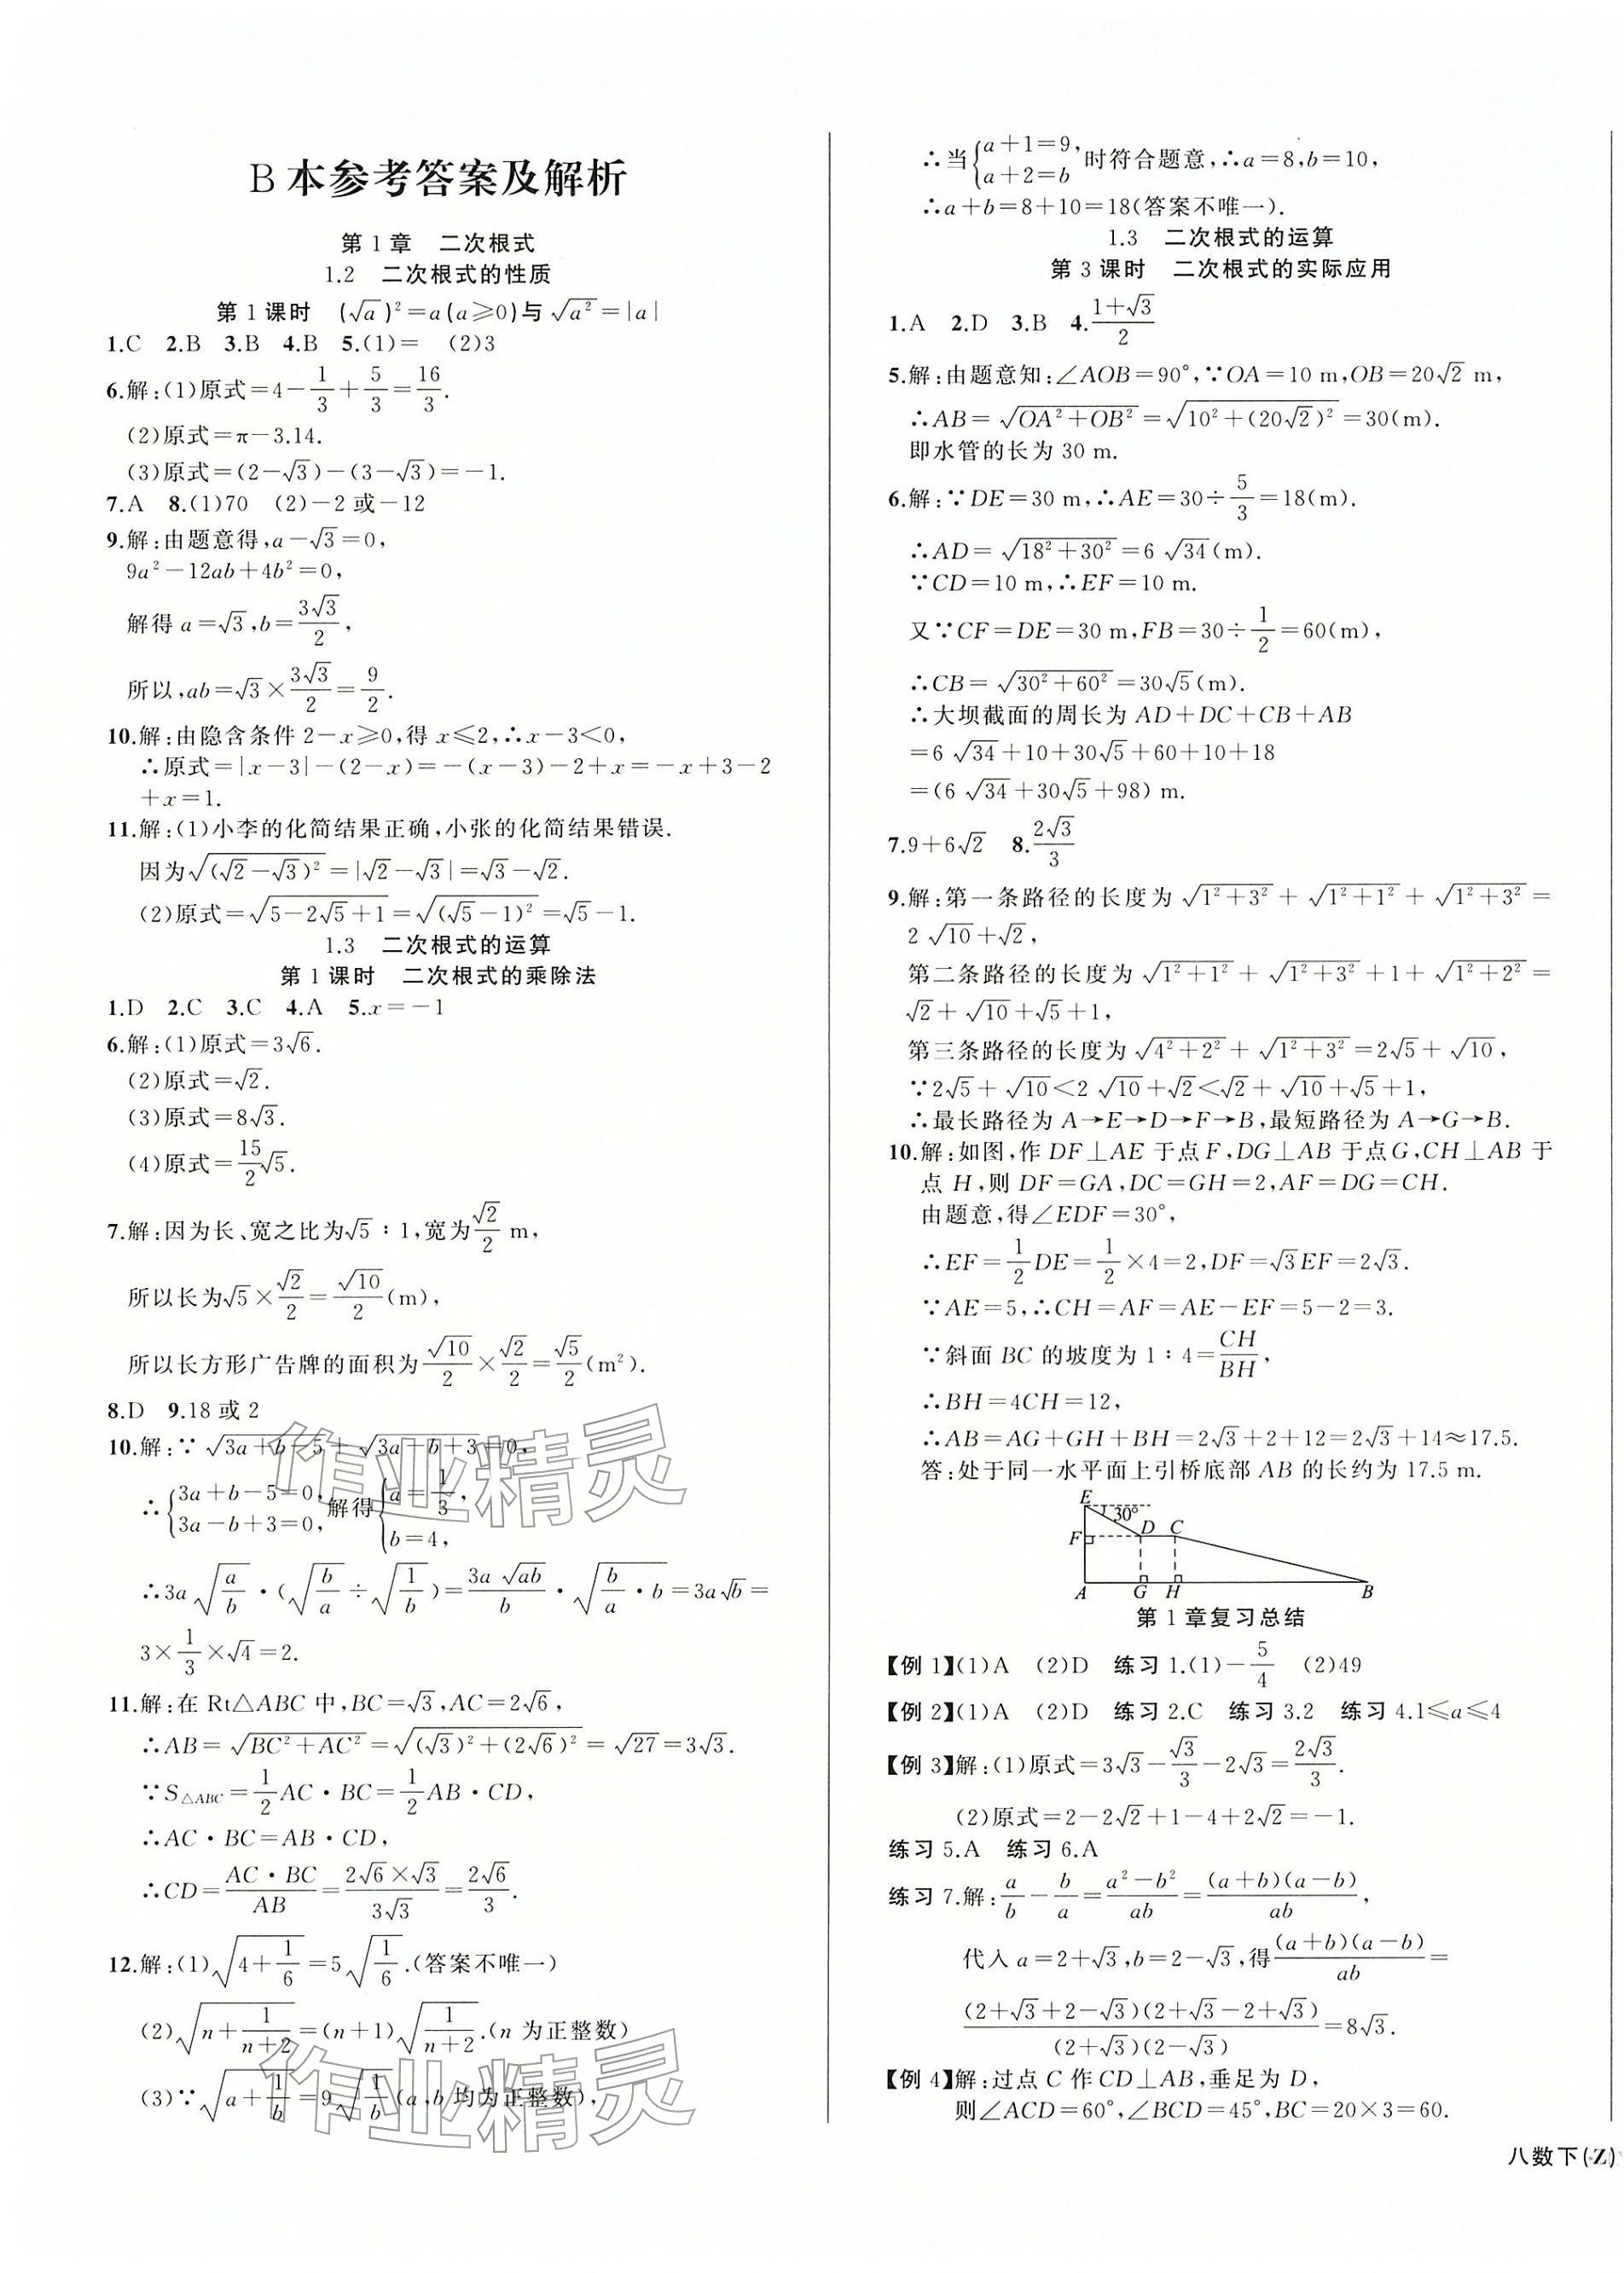 B本参考答案及解析
第1章　二次根式
1.2　二次根式的性质
第1课时　(√a)²=a(a⩾0)与√(a²)=|a|
1.C　2.B　3.B　4.B　5.(1)=　(2)3
6.解:(1)原式=4-1/3+5/3=16/3.
(2)原式=π-3.14.
(3)原式=(2-√3)-(3-√3)=-1.
7.A　8.(1)70　(2)-2或-12
9.解:由题意得,a-√3=0,
9a²-12ab+4b²=0,
解得a=√3,b=3√3/2,
所以,ab=√3×3√3/2=9/2.
10.解:由隐含条件2-x⩾0,得x⩽2,∴x-3<0,
∴原式=|x-3|-(2-x)=-(x-3)-2+x=-x+3-2
+x=1.
11.解:(1)小李的化简结果正确,小张的化简结果错误.
因为√((√2-√3)²)=|√2-√3|=√3-√2.
(2)原式=√(5-2√5+1)=√((√5-1)²)=√5-1.
1.3　二次根式的运算
第1课时　二次根式的乘除法
1.D　2.C　3.C　4.A　5.x=-1
6.解:(1)原式=3√6.
(2)原式=√2.
(3)原式=8√3.
(4)原式=15/2√5.
7.解:因为长、宽之比为√5∶1,宽为√2/2 m,
所以长为√5×√2/2=√10/2(m),
所以长方形广告牌的面积为√10/2×√2/2=√5/2(m²).
8.D　9.18或2
10.解:∵√(3a+b-5)+√(3a-b+3)=0,
∴{3a+b-5=0, 3a-b+3=0,解得{a=1/3, b=4,
∴3a√(a/b)·(√(b/a)÷√(1/b))=3a√(ab)/b·√(b/a·b)=3a√b=
3×1/3×√4=2.
11.解:在Rt△ABC中,BC=√3,AC=2√6,
∴AB=√(BC²+AC²)=√((√3)²+(2√6)²)=√27=3√3.
∵S△ABC=1/2AC·BC=1/2AB·CD,
∴AC·BC=AB·CD,
∴CD=AC·BC/AB=2√6×√3/3√3=2√6/3.
12.解:(1)√(4+1/6)=5√(1/6).(答案不唯一)
(2)√(n+1/(n+2))=(n+1)√(1/(n+2)).(n为正整数)
(3)∵√(a+1/b)=9√(1/b)(a,b均为正整数),
∴当{a+1=9, a+2=b时符合题意,∴a=8,b=10,
∴a+b=8+10=18(答案不唯一).
1.3　二次根式的运算
第3课时　二次根式的实际应用
1.A　2.D　3.B　4.(1+√3)/2
5.解:由题意知:∠AOB=90°,∵OA=10 m,OB=20√2 m,
∴AB=√(OA²+OB²)=√(10²+(20√2)²)=30(m).
即水管的长为30 m.
6.解:∵DE=30 m,∴AE=30÷5/3=18(m).
∴AD=√(18²+30²)=6√34(m).
∵CD=10 m,∴EF=10 m.
又∵CF=DE=30 m,FB=30÷1/2=60(m),
∴CB=√(30²+60²)=30√5(m).
∴大坝截面的周长为AD+DC+CB+AB
=6√34+10+30√5+60+10+18
=(6√34+30√5+98) m.
7.9+6√2　8.2√3/3
9.解:第一条路径的长度为√(1²+3²)+√(1²+1²)+√(1²+3²)=
2√10+√2,
第二条路径的长度为√(1²+1²)+√(1²+3²)+1+√(1²+2²)=
√2+√10+√5+1,
第三条路径的长度为√(4²+2²)+√(1²+3²)=2√5+√10,
∵2√5+√10<2√10+√2<√2+√10+√5+1,
∴最长路径为A→E→D→F→B,最短路径为A→G→B.
10.解:如图,作DF⊥AE于点F,DG⊥AB于点G,CH⊥AB于
点H,则DF=GA,DC=GH=2,AF=DG=CH.
由题意,得∠EDF=30°,
∴EF=1/2DE=1/2×4=2,DF=√3EF=2√3.
∵AE=5,∴CH=AF=AE-EF=5-2=3.
∵斜面BC的坡度为1∶4=CH/BH,
∴BH=4CH=12,
∴AB=AG+GH+BH=2√3+2+12=2√3+14≈17.5.
答:处于同一水平面上引桥底部AB的长约为17.5 m.
E
30°
F　D　C
A　G　H　B
第1章复习总结
【例1】(1)A　(2)D　练习1.(1)-5/4　(2)49
【例2】(1)A　(2)D　练习2.C　练习3.2　练习4.1⩽a⩽4
【例3】解:(1)原式=3√3-√3/3-2√3=2√3/3.
(2)原式=2-2√2+1-4+2√2=-1.
练习5.A　练习6.A
练习7.解:a/b-b/a=(a²-b²)/ab=(a+b)(a-b)/ab,
代入a=2+√3,b=2-√3,得(a+b)(a-b)/ab=
(2+√3+2-√3)(2+√3-2+√3)/(2+√3)(2-√3)=8√3.
【例4】解:过点C作CD⊥AB,垂足为D,
则∠ACD=60°,∠BCD=45°,BC=20×3=60.
八数下(Z)
作业精灵
作业精灵